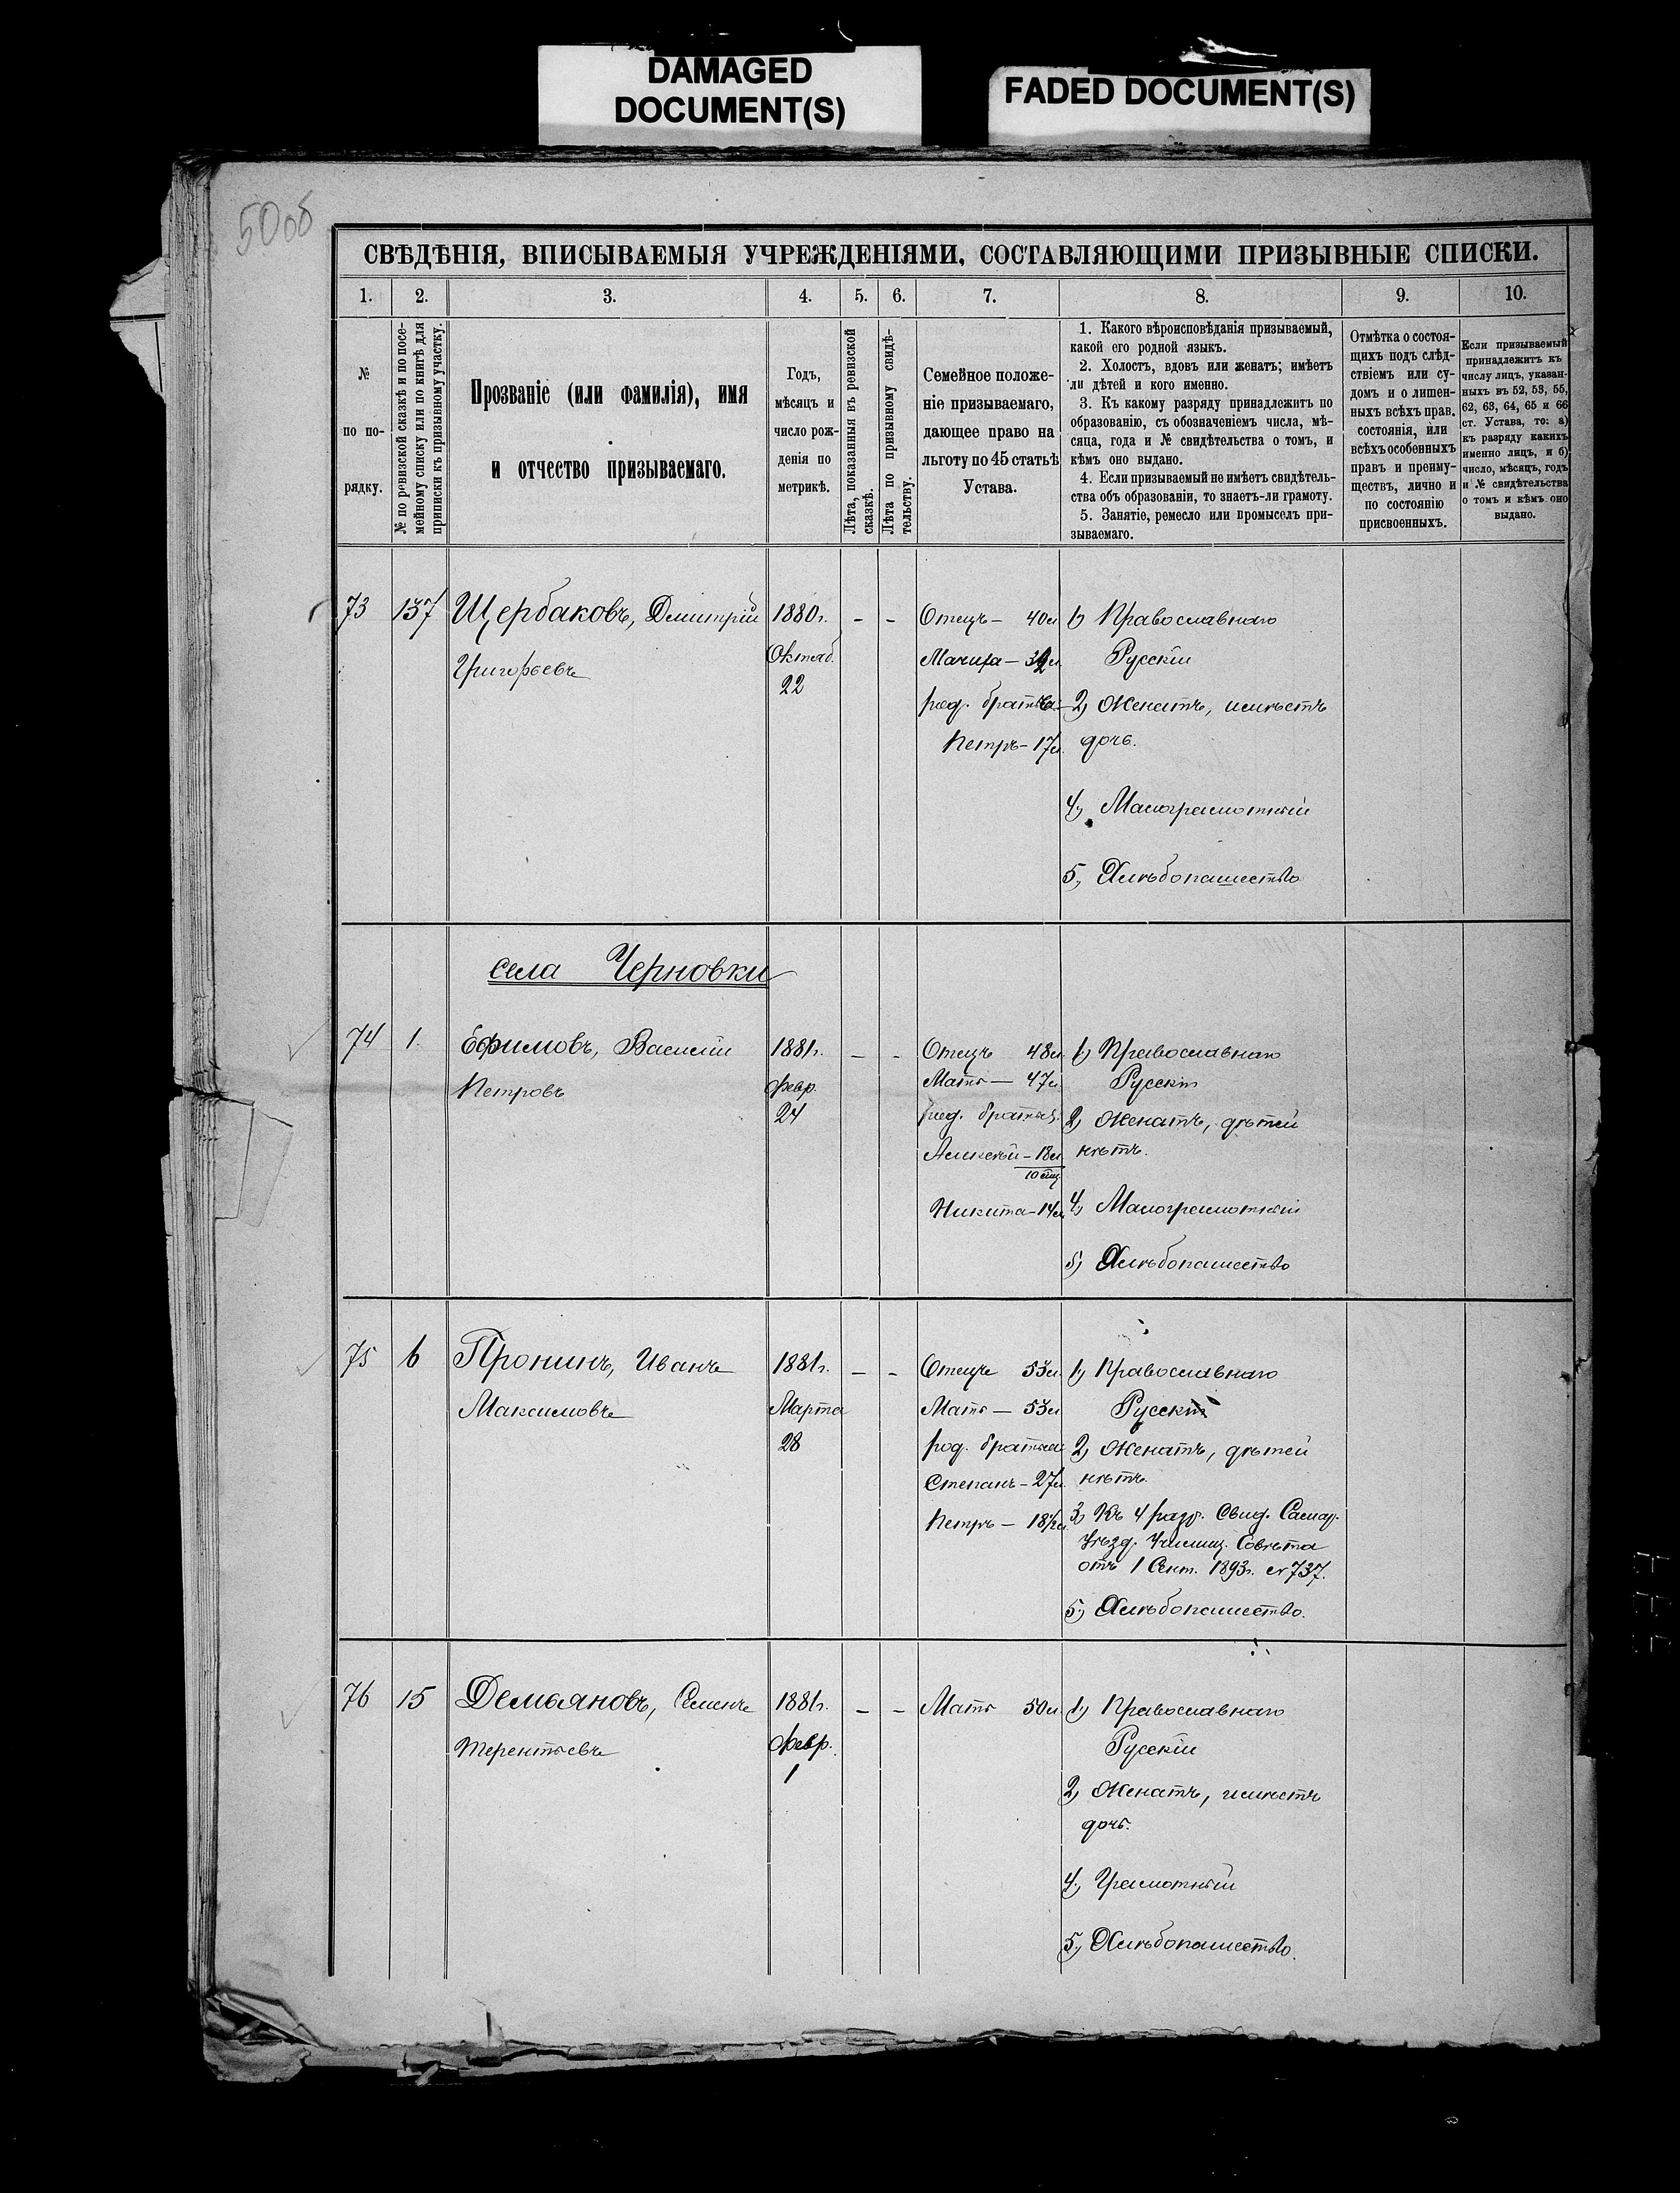 DAMAGED
DOCUMENT(S)
FADED DOCUMENT(S)
50об
СВѢДѢНІЯ, ВПИСЫВАЕМЫЯ УЧРЕЖДЕНІЯМИ, СОСТАВЛЯЮЩИМИ ПРИЗЫВНЫЕ СПИСКИ.
1. 2. 3. 4. 5. 6. 7. 8. 9. 10.
№
по по-
рядку.
№ по ревизской сказкѣ и по посе-
мейному списку или по книгѣ для
приписки къ призывному участку.
Прозваніе (или фамилія), имя
и отчество призываемаго.
Годъ,
мѣсяцъ и
число рож-
денія по
метрикѣ.
Лѣта, показанныя въ ревизской
сказкѣ.
Лѣта по призывному свидѣ-
тельству.
Семейное положе-
ніе призываемаго,
дающее право на
льготу по 45 статьѣ
Устава.
1. Какого вѣроисповѣданія призываемый,
какой его родной языкъ.
2. Холостъ, вдовъ или женатъ; имѣетъ
ли дѣтей и кого именно.
3. Къ какому разряду принадлежитъ по
образованію, съ обозначеніемъ числа, мѣ-
сяца, года и № свидѣтельства о томъ, и
кѣмъ оно выдано.
4. Если призываемый не имѣетъ свидѣтель-
ства объ образованіи, то знаетъ-ли грамоту.
5. Занятіе, ремесло или промыселъ при-
зываемаго.
Отмѣтка о состоя-
щихъ подъ слѣд-
ствіемъ или су-
домъ и о лишен-
ныхъ всѣхъ прав.
состоянія, или
всѣхъ особенныхъ
правъ и преиму-
ществъ, лично и
по состоянію
присвоенныхъ.
Если призываемый
принадлежитъ къ
числу лицъ, указан-
ныхъ въ 52, 53, 55,
62, 63, 64, 65 и 66
ст. Устава, то: а)
къ разряду какихъ
именно лицъ, и б)
число, мѣсяцъ, годъ
и № свидѣтельства
о томъ и кѣмъ оно
выдано.
73 137 Щербаковъ, Димитрій 1880г. - - Отецъ - 40л 1) Православнаго
Григорьевъ Октяб. Мачиха - 32л. Русскій
22 род. братья: 2) Женатъ, имѣетъ
Петръ - 17л. дочь.
4) Малограмотный
5) Хлѣбопашество
села Черновки
74 1 Ефимовъ, Василій 1881г. - - Отецъ 48л. 1) Православнаго
Петровъ февр. Мать - 47л Русскій
24 род. братья: 2) Женатъ, дѣтей
Алексѣй - 18л нѣтъ.
10 мѣс.
Никита - 14л 4) Малограмотный
5) Хлѣбопашество
75 6 Пронинъ, Иванъ 1881г. - - Отецъ 53л. 1) Православнаго
Максимовъ Марта Мать - 53л Русскій
28 род. братья: 2) Женатъ, дѣтей
Степанъ - 27л. нѣтъ.
Петръ - 18½л. 3) Къ 4 разр. Свид. Самар.
Уѣзд. Училищ. Совѣта
отъ 1 Сент. 1893г. № 737.
5) Хлѣбопашество.
76 15 Демьяновъ, Семенъ 1881г. - - Мать 50л. 1) Православнаго
Терентьевъ февр. Русскій
1 2) Женатъ, имѣетъ
дочь.
4) Грамотный
5) Хлѣбопашество.